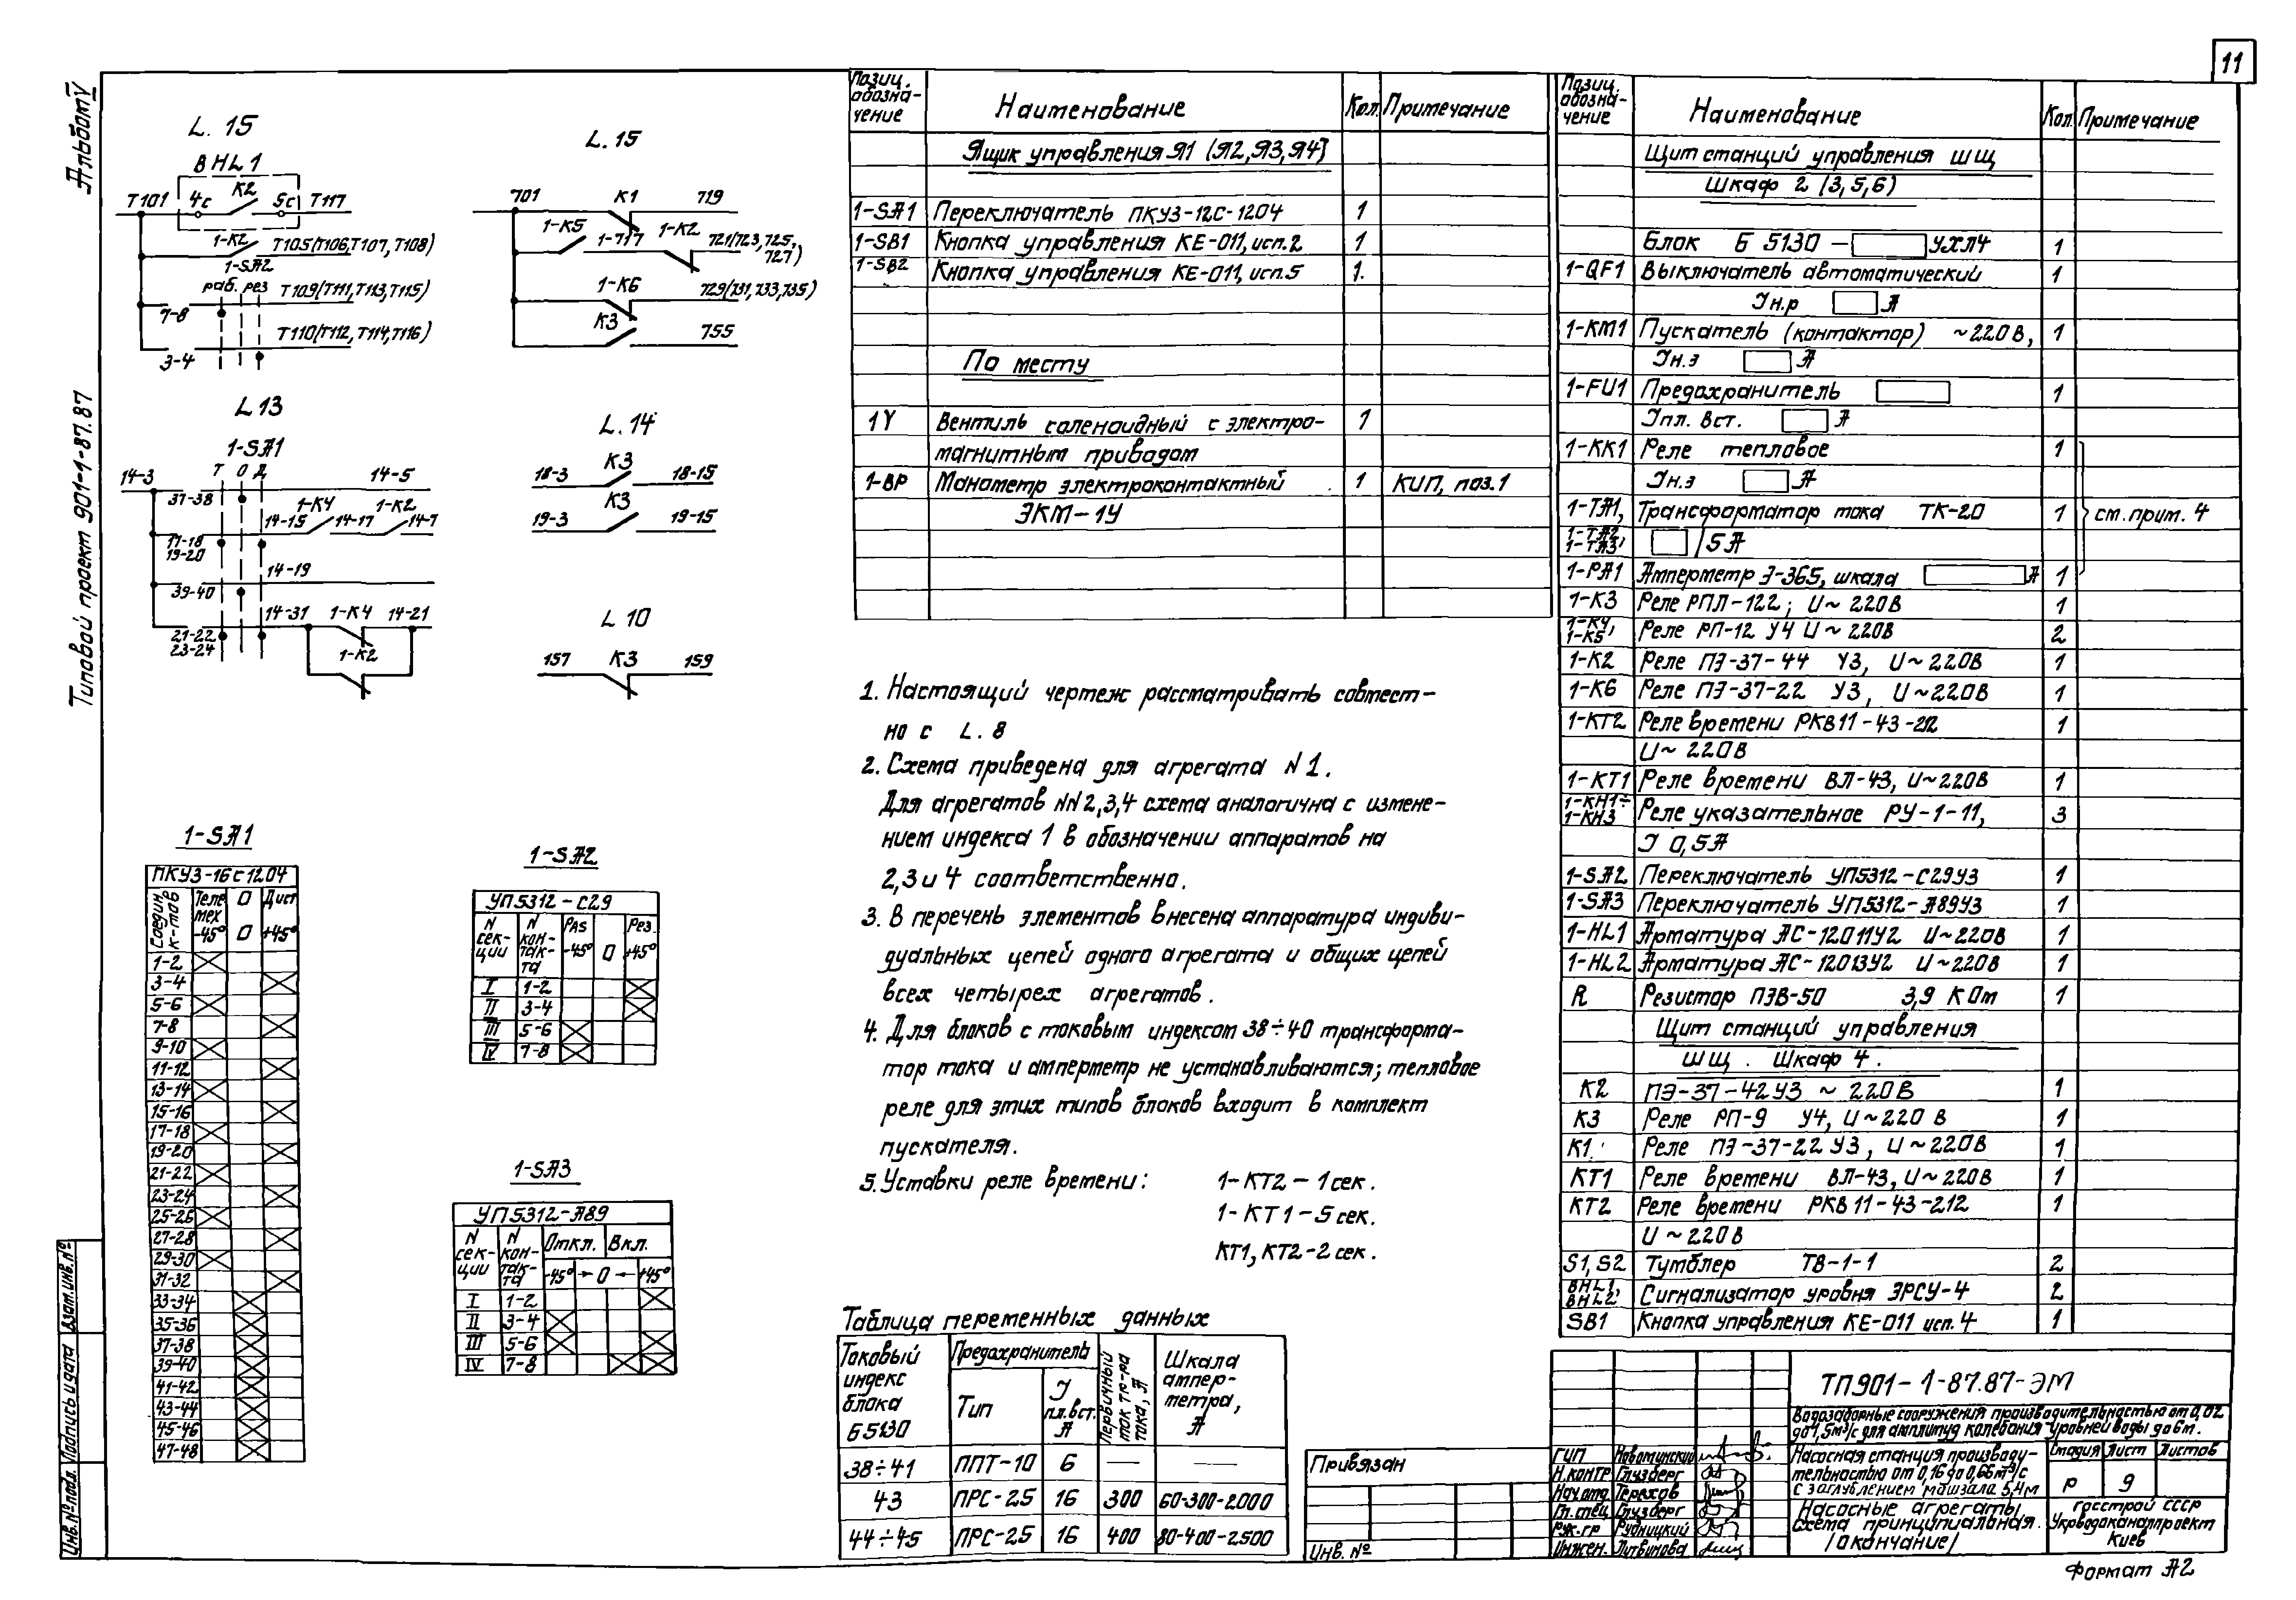 11
Альбом V
Типовой проект 901-1-87.87
L. 15
ВHL1
Т101 4с К2 5с Т117
1-К2 Т105(Т106,Т107,Т108)
1-SА2
раб. рез Т109(Т111,Т113,Т115)
7-8
Т110(Т112,Т114,Т116)
3-4
L. 15
701 К1 719
1-К5 1-717 1-К2 721(723,725,
727)
1-К6 729(731,733,735)
К3 755
L 13
1-SА1
Т О Д
14-3 37-38 14-5
1-К4 1-К2
14-15 14-17 14-7
17-18
19-20
14-19
39-40
14-31 1-К4 14-21
21-22
23-24
1-К2
L. 14
18-3 К3 18-15
19-3 К3 19-15
L 10
157 К3 159
1-SА1
ПКУ3-16с1204
Соедин. к-тов Теле мех -45° 0 0 Дист +45°
1-2
3-4
5-6
7-8
9-10
11-12
13-14
15-16
17-18
19-20
21-22
23-24
25-26
27-28
29-30
31-32
33-34
35-36
37-38
39-40
41-42
43-44
45-46
47-48
1-SА2
УП5312-С29
N сек-ции N кон-так-та Раб -45° 0 Рез. +45°
I 1-2
II 3-4
III 5-6
IV 7-8
1-SА3
УП5312-А89
N сек-ции N кон-так-та Откл. Вкл.
-45° → 0 ← +45°
I 1-2
II 3-4
III 5-6
IV 7-8
Позиц. обозна-чение Наименование Кол. Примечание
Ящик управления Я1 (Я2,Я3,Я4)
1-SА1 Переключатель ПКУ3-12С-1204 1
1-SB1 Кнопка управления КЕ-011, исп.2 1
1-SB2 Кнопка управления КЕ-011, исп.5 1.
По месту
1Y Вентиль соленоидный с электро- 1
магнитным приводом
1-ВР Манометр электроконтактный 1 КИП, поз.1
ЭКМ-1У
1. Настоящий чертеж рассматривать совмест-
но с L. 8
2. Схема приведена для агрегата N 1.
Для агрегатов NN 2,3,4 схема аналогична с измене-
нием индекса 1 в обозначении аппаратов на
2,3 и 4 соответственно.
3. В перечень элементов внесена аппаратура индиви-
дуальных цепей одного агрегата и общих цепей
всех четырех агрегатов.
4. Для блоков с токовым индексом 38÷40 трансформа-
тор тока и амперметр не устанавливаются; тепловое
реле для этих типов блоков входит в комплект
пускателя.
5. Уставки реле времени: 1-КТ2 - 1 сек.
1-КТ1 - 5 сек.
КТ1, КТ2 - 2 сек.
Таблица переменных данных
Токовый индекс блока Б5130 Предохранитель Первичный ток тр-ра тока, А Шкала ампер-метра, А
Тип I пл.вст. А
38÷41 ППТ-10 6 — —
43 ПРС-25 16 300 60-300-2000
44÷45 ПРС-25 16 400 80-400-2500
Позиц. обозна-чение Наименование Кол. Примечание
Щит станций управления ШЩ
Шкаф 2 (3,5,6)
Блок Б 5130 - УХЛ4 1
1-QF1 Выключатель автоматический 1
Iн.р А
1-КМ1 Пускатель (контактор) ~220 В, 1
Iн.э А
1-FU1 Предохранитель 1
Iпл. вст. А
1-КК1 Реле тепловое 1
Iн.э А
1-ТА1, Трансформатор тока ТК-20 1 см. прим. 4
1-ТА2, 1-ТА3, /5А
1-РА1 Амперметр Э-365, шкала А 1
1-К3 Реле РПЛ-122; U~220В 1
1-К4, 1-К5, Реле РП-12 У4 U~220В 2
1-К2 Реле ПЭ-37-44 У3, U~220В 1
1-К6 Реле ПЭ-37-22 У3, U~220В 1
1-КТ2 Реле времени РКВ11-43-212 1
U~220В
1-КТ1 Реле времени ВЛ-43, U~220В 1
1-КН1÷ 1-КН3 Реле указательное РУ-1-11, 3
I 0,5А
1-SА2 Переключатель УП5312-С29У3 1
1-SА3 Переключатель УП5312-А89У3 1
1-HL1 Арматура АС-12011У2 U~220В 1
1-HL2 Арматура АС-12013У2 U~220В 1
R Резистор ПЭВ-50 3,9 КОм 1
Щит станций управления
ШЩ. Шкаф 4.
К2 ПЭ-37-42У3 ~220В 1
К3 Реле РП-9 У4, U~220 В 1
К1 Реле ПЭ-37-22 У3, U~220В 1
КТ1 Реле времени ВЛ-43, U~220В 1
КТ2 Реле времени РКВ11-43-212 1
U~220В
S1, S2 Тумблер ТВ-1-1 2
ВHL1, ВHL2, Сигнализатор уровня ЭРСУ-4 2
SB1 Кнопка управления КЕ-011 исп. 4 1
ТП901-1-87.87-ЭМ
Водозаборные сооружения производительностью от 0,02
до 1,5м³/с для амплитуд колебания уровней воды до 6м.
Насосная станция производи-
тельностью от 0,16 до 0,66м³/с
с заглублением машзала 5,4м
Стадия Лист Листов
Р 9
Насосные агрегаты
Схема принципиальная.
/окончание/
Госстрой СССР
Укрводоканалпроект
Киев
ГИП Новоминский
Н.контр Глузберг
Нач.отд Терехов
Гл.спец Глузберг
Рук.гр Рудницкий
Инжен. Литвинова
Привязан
Инв. №
Взам.инв.№
Подпись и дата
Инв.№ подл.
Формат А2